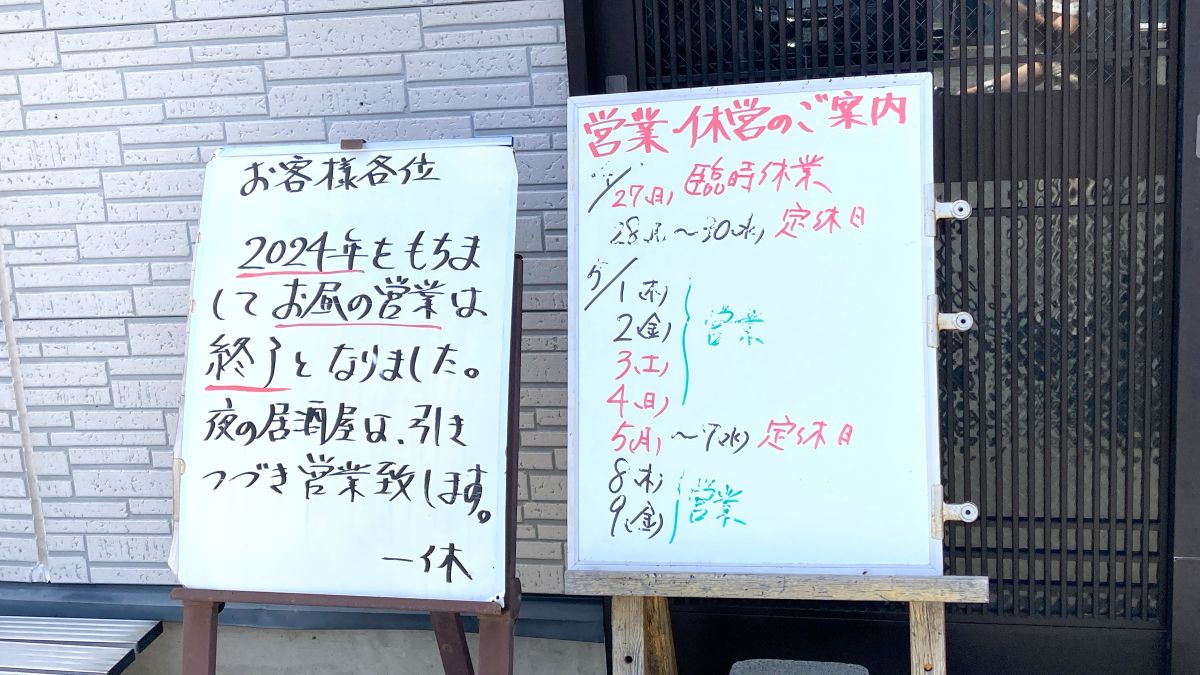 お客様各位
2024年をもちま
してお昼の営業は
終了となりました。
夜の居酒屋は、引き
つづき営業致します。
一休
営業・休営のご案内
27(日) 臨時休業
28(月)〜30(水) 定休日
5/1(木)
2(金) 営業
3(土)
4(日)
5(月)〜7(水) 定休日
8(木)
9(金) 営業